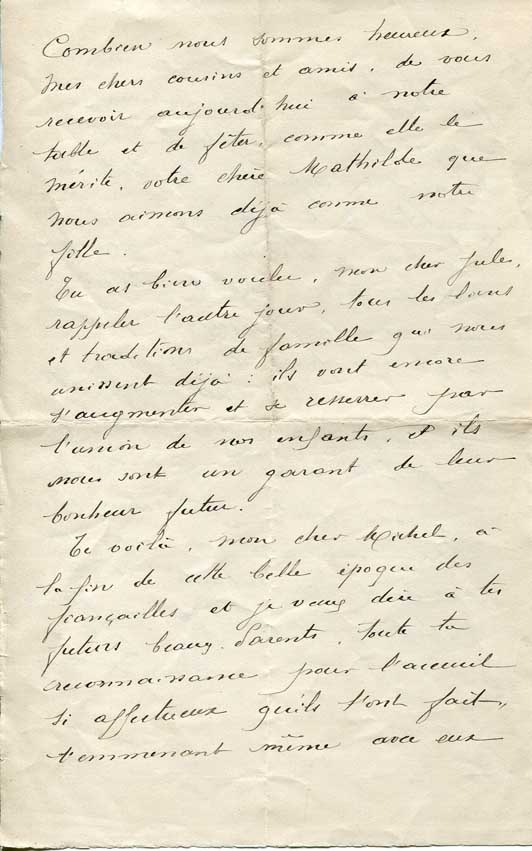 Combien nous sommes heureux,
mes chers cousins et amis, de vous
recevoir aujourd'hui à notre
table et de fêter, comme elle le
mérite, votre chère Mathilde que
nous aimons déjà comme notre
fille.
Tu as bien voulu, mon cher Jules,
rappeler l'autre jour, tous les liens
et traditions de famille qui nous
unissent déjà : ils vont encore
s'augmenter et se resserrer par
l'union de nos enfants, et ils
nous sont un garant de leur
bonheur futur.
Te voilà, mon cher Michel, à
la fin de cette belle époque des
fiançailles et je veux dire à tes
futurs beaux-Parents, toute ta
reconnaissance pour l'accueil
si affectueux qu'ils t'ont fait,
t'emmenant même avec eux